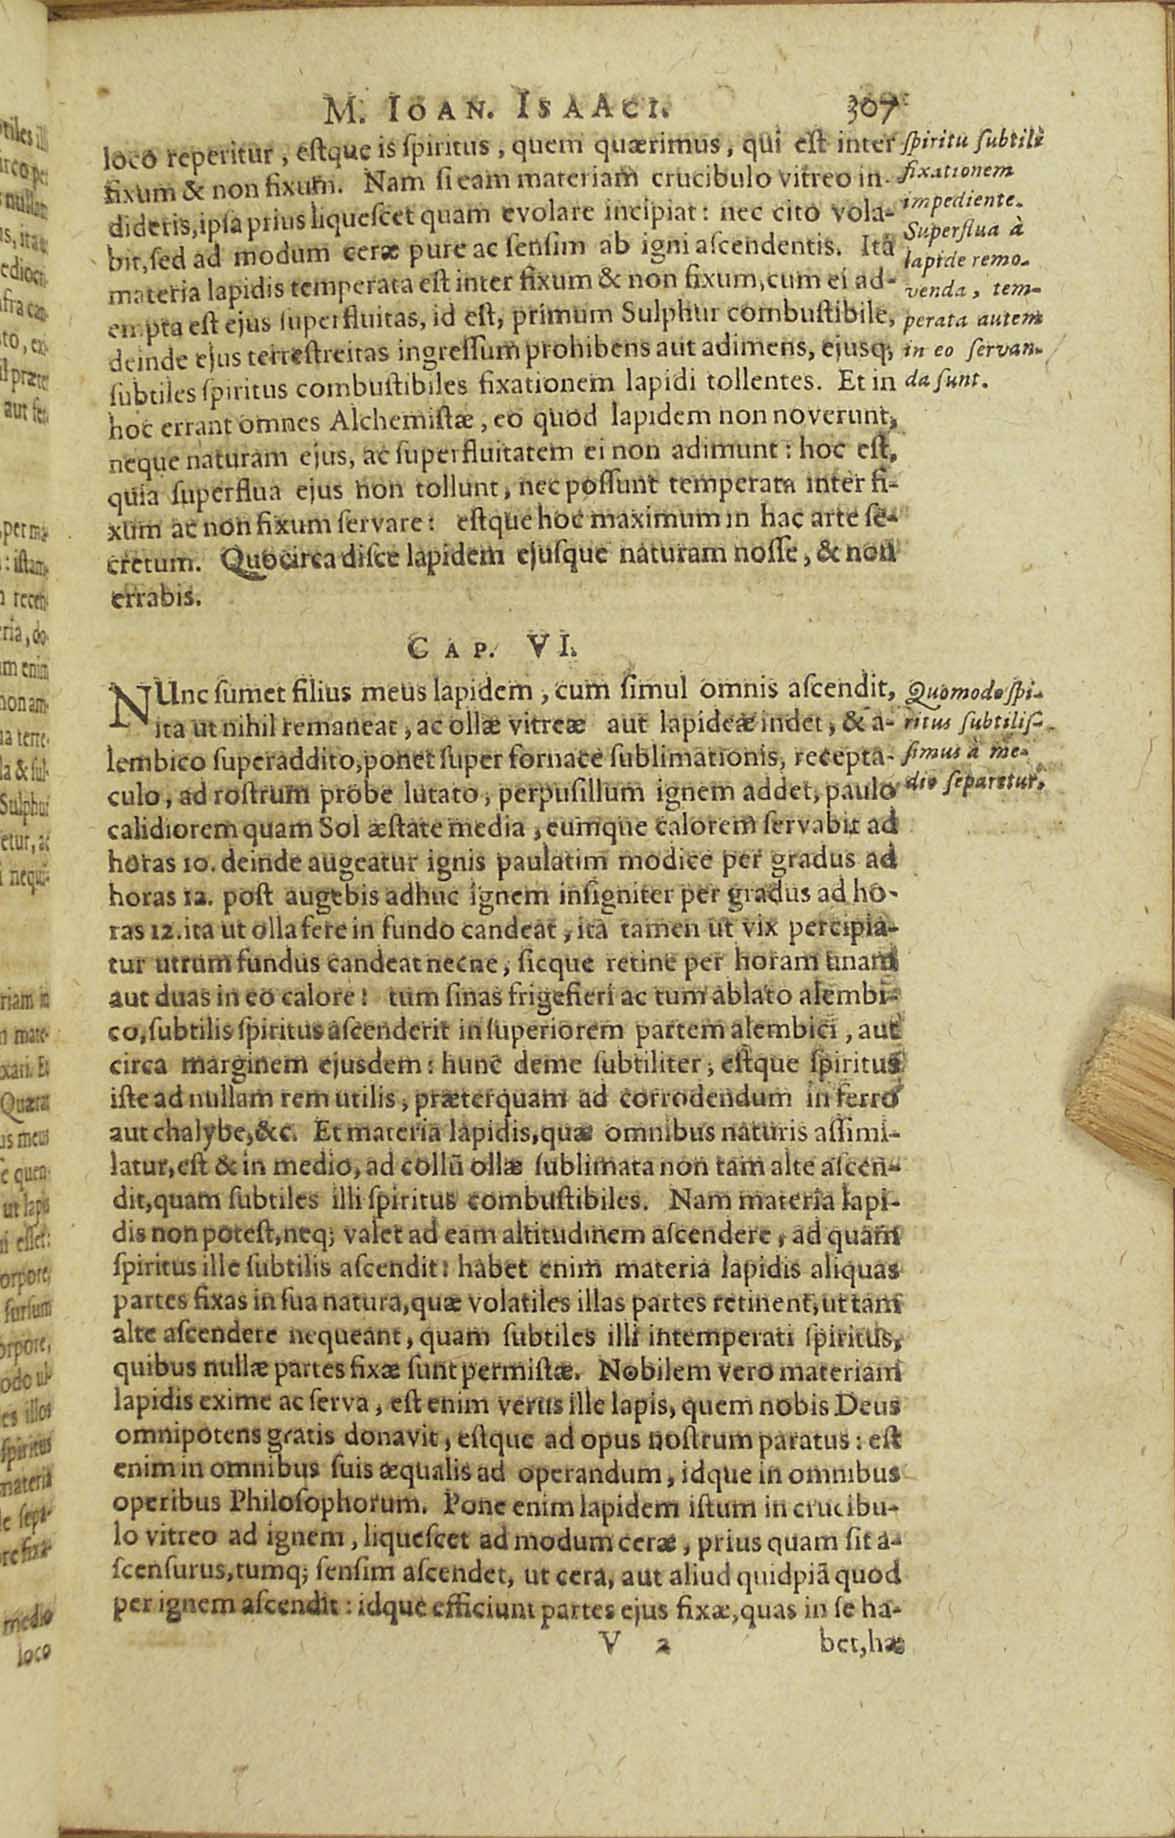 M. IOAN. ISAACI. 307
loco reperitur, estque is spiritus, quem quærimus, qui est inter
fixum & non fixum. Nam si eam materiam crucibulo vitreo in-
dideris, ipsa prius liquescet quam evolare incipiat: nec cito vola-
bit, sed ad modum ceræ pure ac sensim ab igni ascendentis. Ita
materia lapidis temperata est inter fixum & non fixum, cum ei ad-
empta est ejus superfluitas, id est, primum Sulphur combustibile,
deinde ejus terrestreitas ingressum prohibens aut adimens, ejusq;
subtiles spiritus combustibiles fixationem lapidi tollentes. Et in
hoc errant omnes Alchemistæ, eo quod lapidem non noverunt,
neque naturam ejus, ac superfluitatem ei non adimunt: hoc est,
quia superflua ejus non tollunt, nec possunt temperata inter fi-
xum ac non fixum servare: estque hoc maximum in hac arte se-
cretum. Quocirca disce lapidem ejusque naturam nosse, & non
errabis.
spiritu subtile
fixationem
impediente.
Superflua à
lapide remo-
venda, tem-
perata autem
in eo servan-
da sunt.
CAP. VI.
NUnc sumet filius meus lapidem, cum simul omnis ascendit,
ita ut nihil remaneat, ac ollæ vitreæ aut lapideæ indet, & a-
lembico superaddito, ponet super fornace sublimationis, recepta-
culo, ad rostrum probe lutato, perpusillum ignem addet, paulo
calidiorem quam Sol æstate media, eumque calorem servabit ad
horas 10. deinde augeatur ignis paulatim modice per gradus ad
horas 12. post augebis adhuc ignem insigniter per gradus ad ho-
ras 12. ita ut olla fere in fundo candeat, ita tamen ut vix percipia-
tur utrum fundus candeat necne, sicque retine per horam unam
aut duas in eo calore: tum sinas frigefieri ac tum ablato alembi-
co, subtilis spiritus ascenderit in superiorem partem alembici, aut
circa marginem ejusdem: hunc deme subtiliter, estque spiritus
iste ad nullam rem utilis, præterquam ad corrodendum in ferro
aut chalybe, &c. Et materia lapidis, quæ omnibus naturis assimi-
latur, est & in medio, ad collū ollæ sublimata non tam alte ascen-
dit, quam subtiles illi spiritus combustibiles. Nam materia lapi-
dis non potest, neq; valet ad eam altitudinem ascendere, ad quam
spiritus ille subtilis ascendit: habet enim materia lapidis aliquas
partes fixas in sua natura, quæ volatiles illas partes retinent, ut tam
alte ascendere nequeant, quam subtiles illi intemperati spiritus,
quibus nullæ partes fixæ sunt permistæ. Nobilem vero materiam
lapidis exime ac serva, est enim verus ille lapis, quem nobis Deus
omnipotens gratis donavit, estque ad opus nostrum paratus: est
enim in omnibus suis æqualis ad operandum, idque in omnibus
operibus Philosophorum. Pone enim lapidem istum in crucibu-
lo vitreo ad ignem, liquescet ad modum ceræ, prius quam sit a-
scensurus, tumq; sensim ascendet, ut cera, aut aliud quidpiā quod
per ignem ascendit: idque efficiunt partes ejus fixæ, quas in se ha-
Quomodo spi-
ritus subtilis-
simus à me-
dio separetur.
V 2 bet, hæ